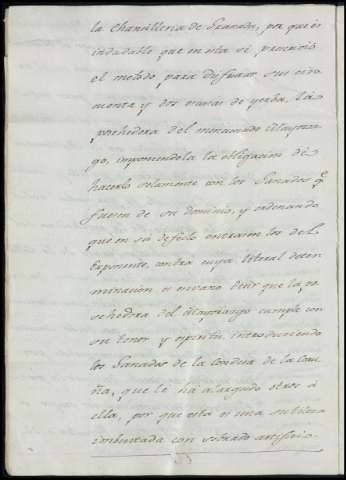 la Chancilleria de Granada, por que es
indudable que en ella se prescrivió
el metodo para disfrutar sus
y dos vacas de yerba, la
poshedora del mencionado Mayoraz-
go, imponiendola la obligacion de
hacerlo solamente con los Ganados q.e
fuesen de su dominio, y ordenando
que en su defecto entrasen los del
Exponente, contra cuya literal deter-
minacion, es en vano decir que la po-
sehedora del Mayorazgo cumple con
su tenor y espiritu, introduciendo
los Ganados de la Condesa de la
que le há alargado otros á
ella, por que esta es una sutileza
inventada con sobrado artificio